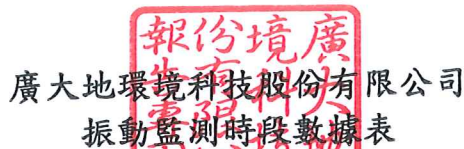 廣大地環境科技股份有限公司
振動監測時段數據表